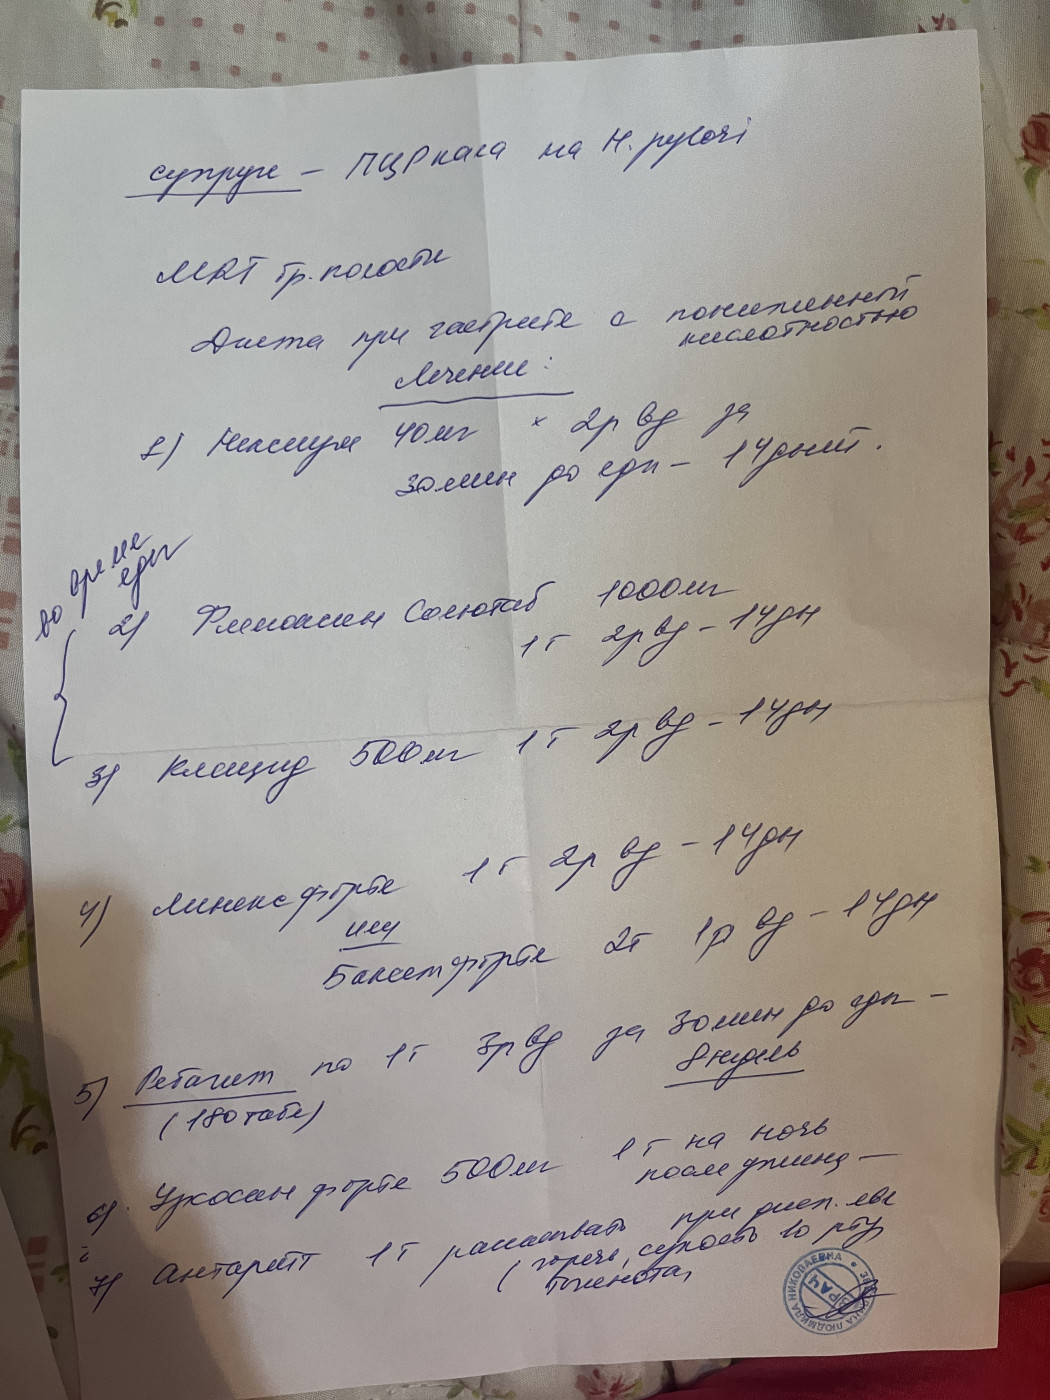 супруге – ПЦР кала на H. pylori
МРТ бр. полости
Диета при гастрите с пониженной
кислотностью
Лечение:
1) Нексиум 40мг × 2р вд за
30мин до еды – 14дней.
во время
еды
2) Флемоксин Солютаб 1000мг
1т 2р вд – 14дн
3) Клацид 500мг 1т 2р вд – 14дн
4) Линекс форте 1т 2р вд – 14дн
или
Баксет форте 2т 1р вд – 14дн
5) Ребагит по 1т 3р вд за 30мин до еды –
8недель
(180табл)
6) Урсосан форте 500мг 1т на ночь
после ужина –
7) Антарейт 1т рассасывать при дисп. явл
(горечь, сухость во рту,
тошнота,
ЛЮДМИЛА НИКОЛАЕВНА
ВРАЧ